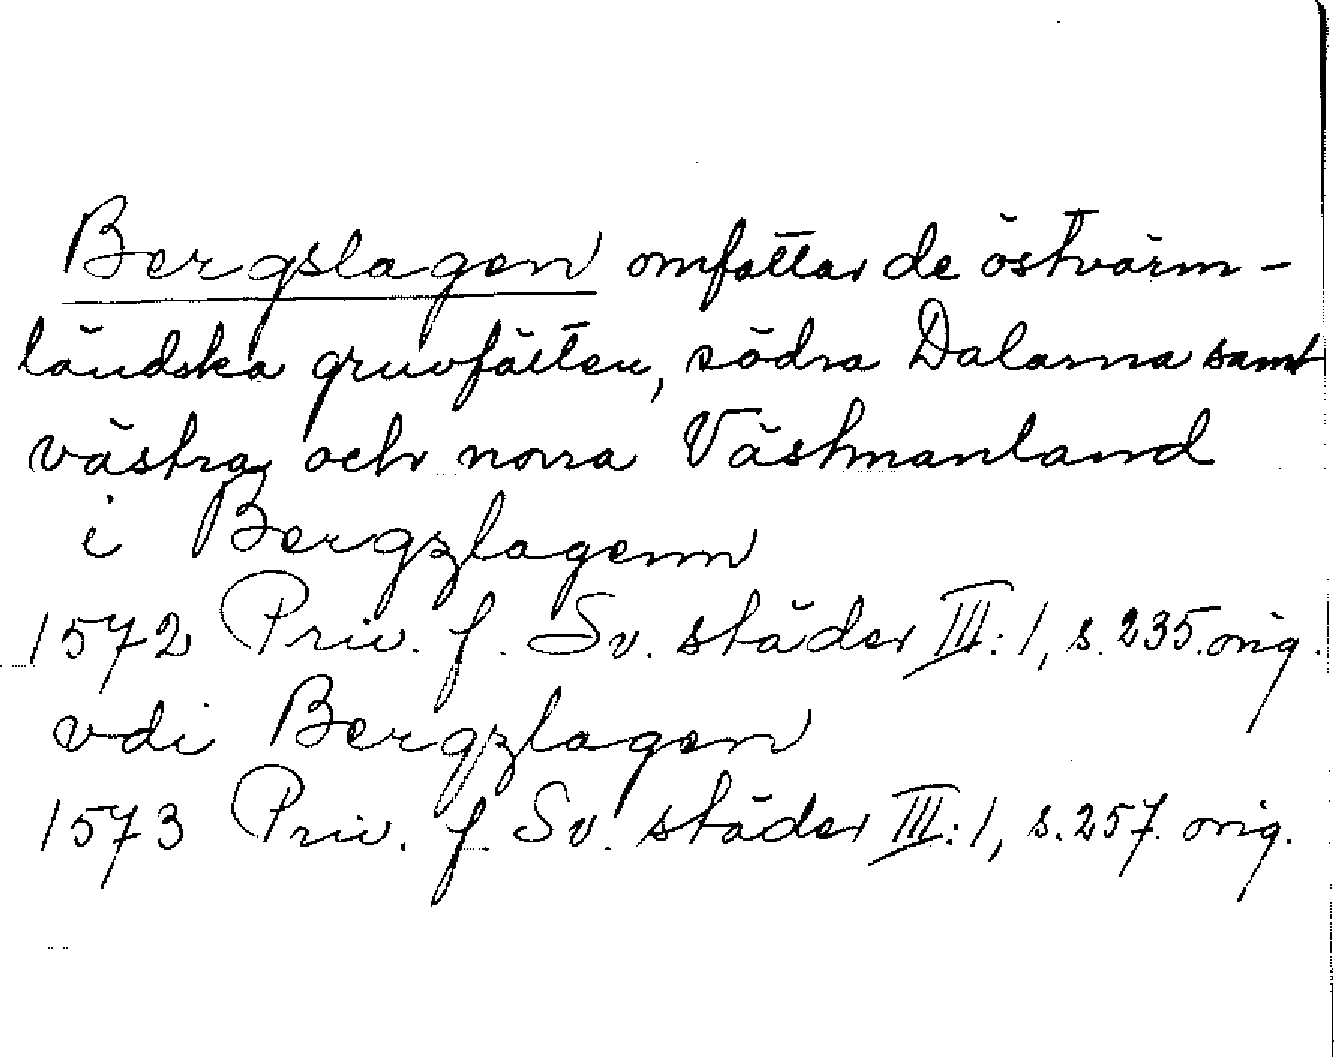 Bergslagen omfattar de östvärm-
ländska gruvfälten, södra Dalarna samt
västra och norra Västmanland
i Bergzlagenn
1572 Priv. f. Sv. städer III:1, s. 235. orig.
vdi Bergzlagen
1573 Priv. f Sv. städer III:1, s. 257. orig.